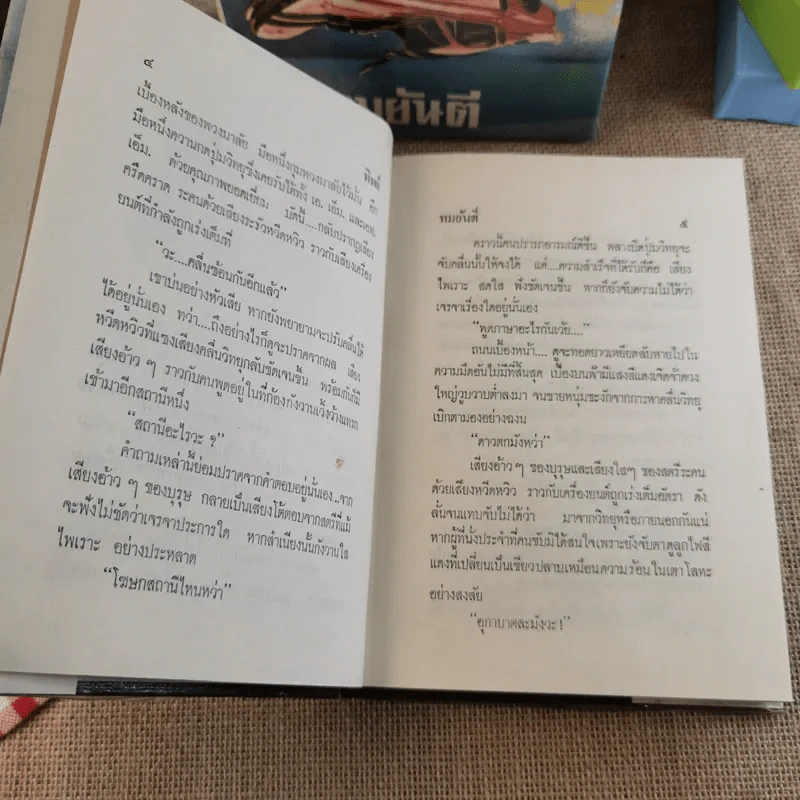 มยันตี
๔
ทิพย์
เบื้องหลังของพวงมาลัย มือหนึ่งกุมพวงมาลัยไว้มั่น อีก
มือหนึ่งควานกดปุ่มวิทยุซึ่งเคยรับได้ทั้ง เอ. เอ็ม. และเอฟ.
เอ็ม. ด้วยคุณภาพยอดเยี่ยม บัดนี้....กลับปรากฏเสียง
ครืดคราด ระคนด้วยเสียงระรัวหวีดหวิว ราวกับเสียงเครื่อง
ยนต์ที่กำลังถูกเร่งเต็มที่
“วะ....คลื่นซ้อนกันอีกแล้ว”
เขาบ่นอย่างหัวเสีย หากยังพยายามจะปรับคลื่นให้
ได้อยู่นั่นเอง ทว่า....ถึงอย่างไรก็ดูจะปราศจากผล เสียง
หวีดหวิวที่แซงเสียงคลื่นวิทยุกลับชัดเจนขึ้น พร้อมกันก็มี
เสียงอ้าว ๆ ราวกับคนพูดอยู่ในที่ก้องกังวานเวิ้งว้างแทรก
เข้ามาอีกสถานีหนึ่ง
“สถานีอะไรวะ ?”
คำถามเหล่านี้ย่อมปราศจากคำตอบอยู่นั่นเอง..จาก
เสียงอ้าว ๆ ของบุรุษ กลายเป็นเสียงโต้ตอบจากสตรีที่แม้
จะฟังไม่ชัดว่าเจรจาประการใด หากสำเนียงนั้นกังวานใส
ไพเราะ อย่างประหลาด
“โฆษกสถานีไหนหว่า”
ทมยันตี
๕
คราวนี้คนปรารภอารมณ์ดีขึ้น พลางบิดปุ่มวิทยุจะ
จับคลื่นนั้นให้จงได้ แต่....ความสำเร็จที่ได้รับก็คือ เสียง
ไพเราะ สดใส ฟังชัดเจนขึ้น หากก็ยังจับความไม่ได้ว่า
เจรจาเรื่องใดอยู่นั่นเอง
“พูดภาษาอะไรกันเว้ย....”
ถนนเบื้องหน้า.... ดูจะทอดยาวเหยียดลับหายไปใน
ความมืดอันไม่มีที่สิ้นสุด เบื้องบนฟ้ามีแสงสีแดงเจิดจ้าดวง
ใหญ่วูบวาบต่ำลงมา จนชายหนุ่มชะงักจากการหาคลื่นวิทยุ
เบิกตามองอย่างฉงน
“ดาวตกมั้งหว่า”
เสียงอ้าว ๆ ของบุรุษและเสียงใสๆ ของสตรีระคน
ด้วยเสียงหวีดหวิว ราวกับเครื่องยนต์ถูกเร่งเต็มอัตรา ดัง
ลั่นจนแทบจับไม่ได้ว่า มาจากวิทยุหรือภายนอกกันแน่
หากผู้ที่นั่งประจำที่คนขับมิได้สนใจเพราะยังจับตาดูลูกไฟสี
แดงที่เปลี่ยนเป็นเขียวปลาบเหมือนความร้อนในเตาโลหะ
อย่างสงสัย
“อุกาบาตละมังวะ !”